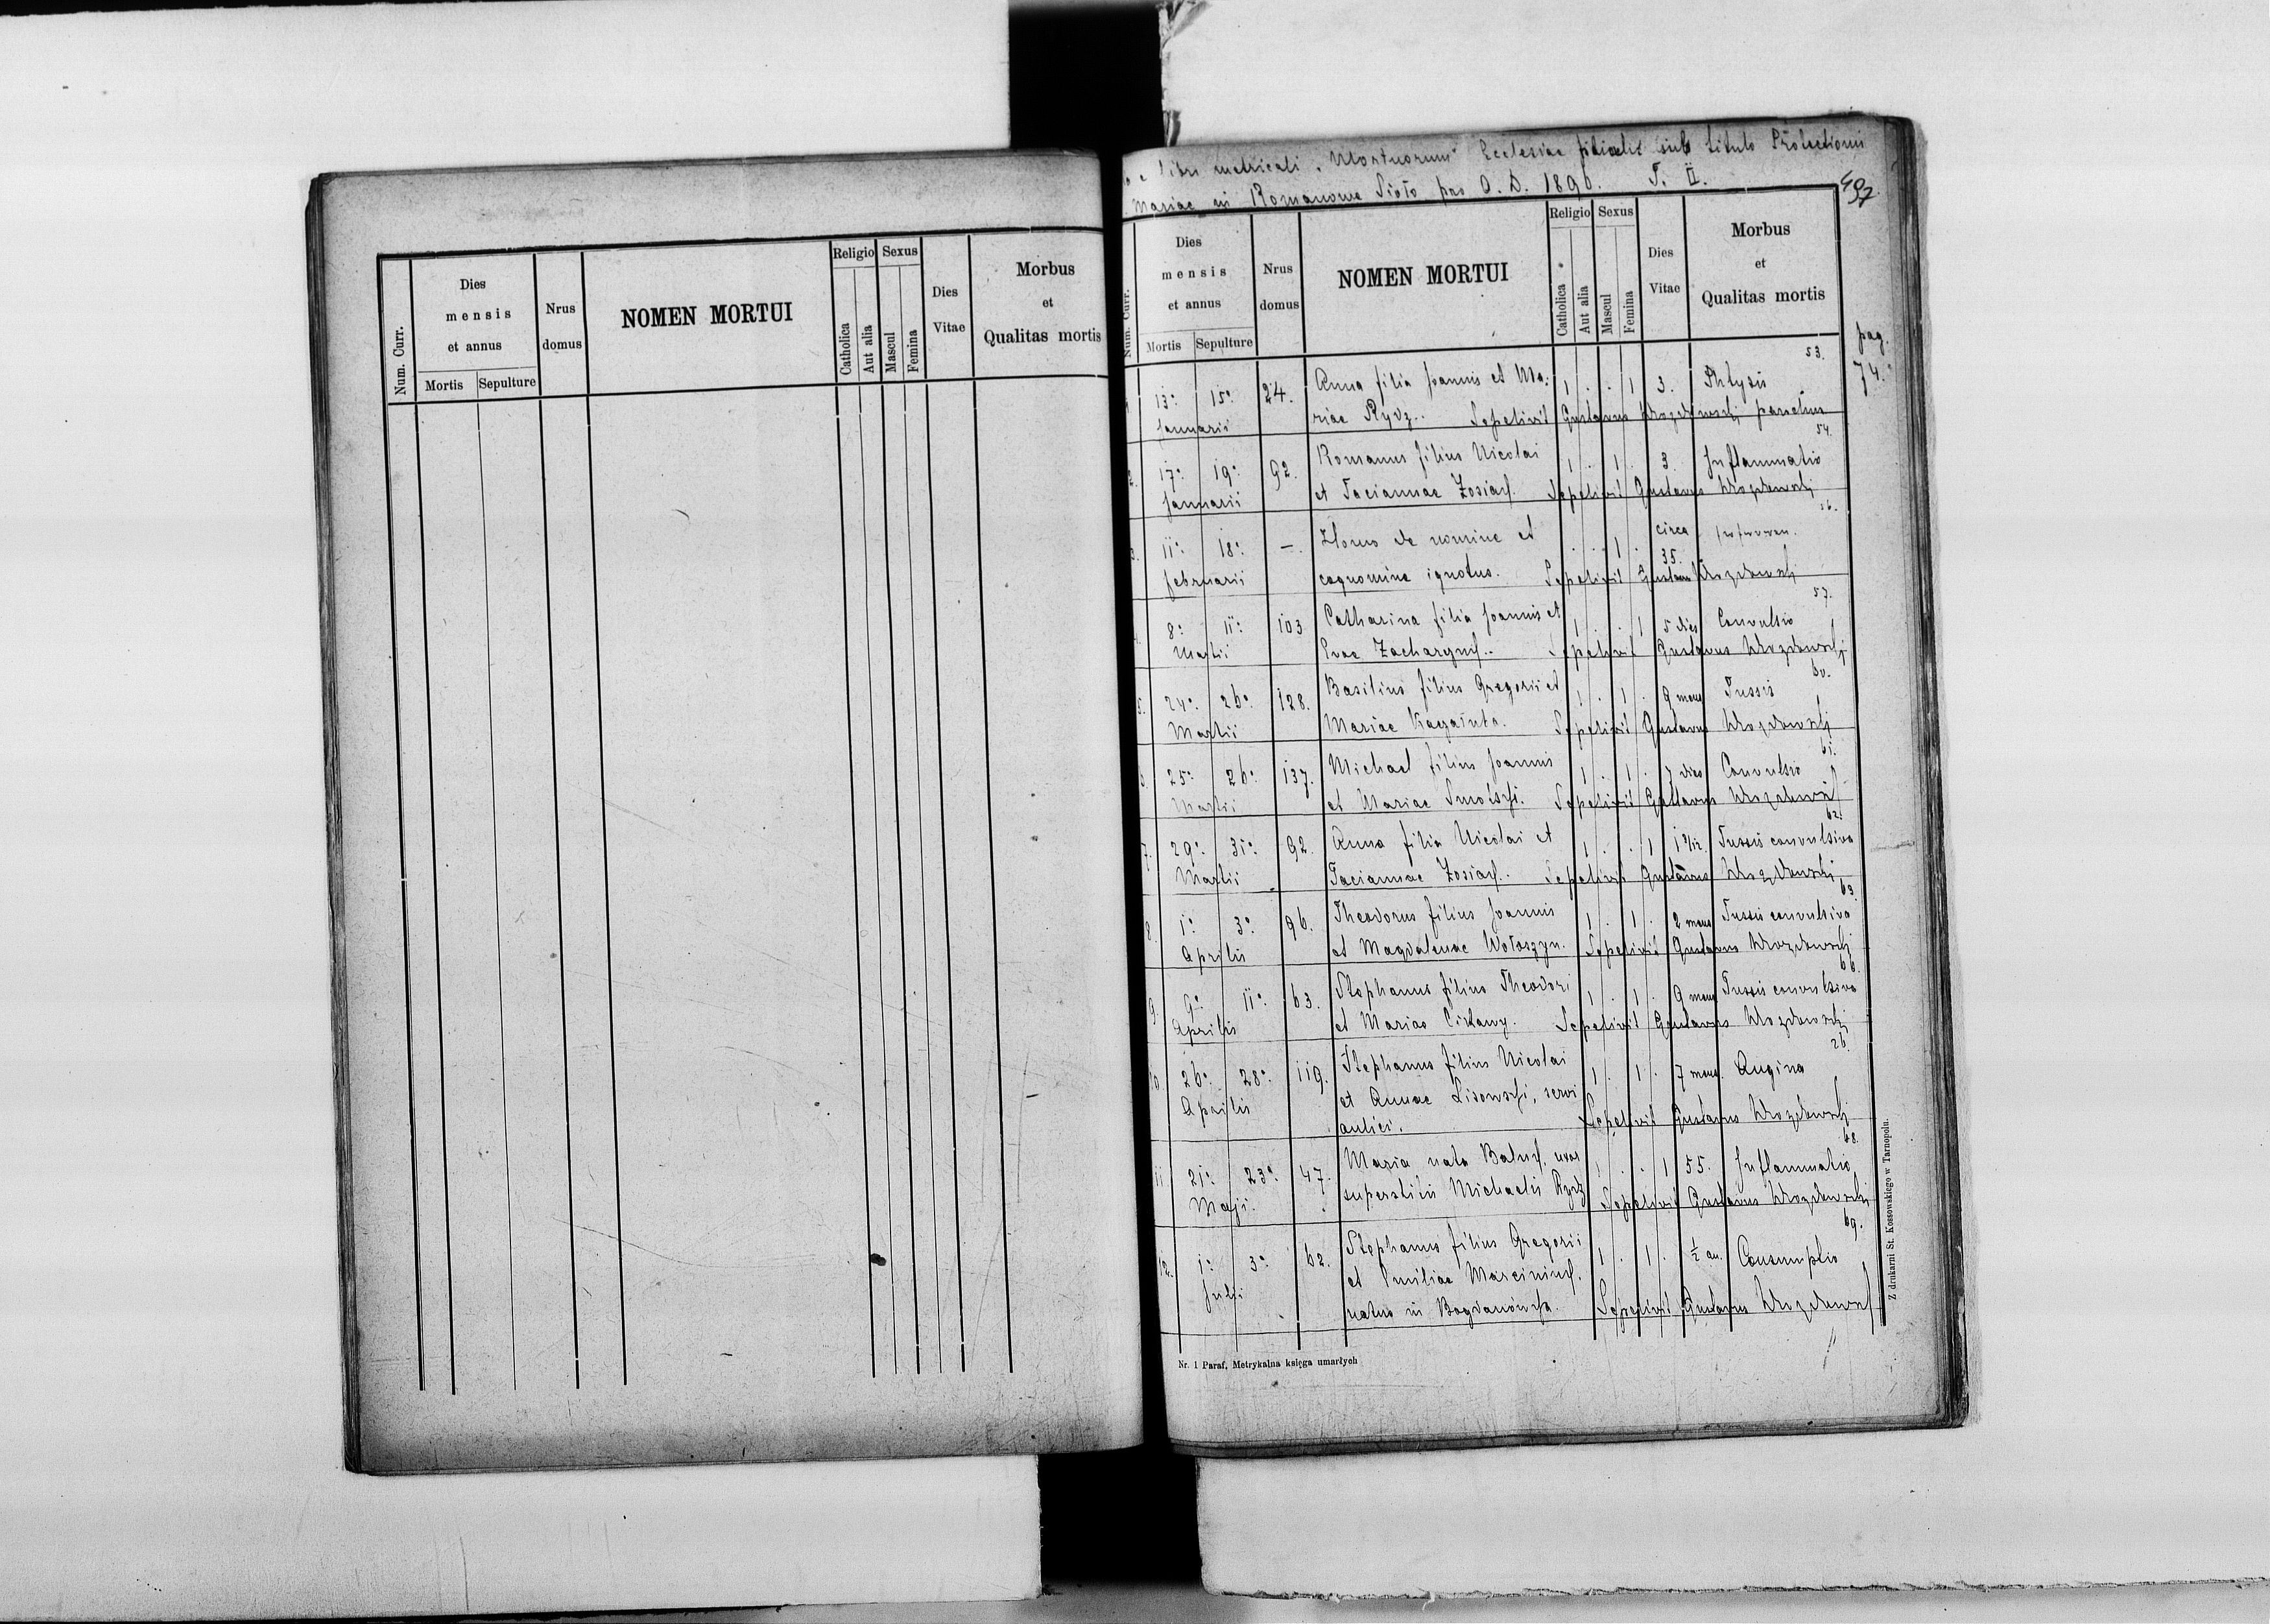 Num. Curr.
Dies
mensis
et annus
Mortis
Sepulture
Nrus
domus
NOMEN MORTUI
Religio
Catholica
Aut alia
Sexus
Mascul
Femina
Dies
Vitae
Morbus
et
Qualitas mortis
libri metricali "Mortuorum" Ecclesiae filialis sub titulo Protectionis
Mariae in Romanowe Sioło pro A. D. 1896. T. II.
497.
pag.
74.
Num. Curr.
Dies
mensis
et annus
Mortis
Sepulture
Nrus
domus
NOMEN MORTUI
Religio
Catholica
Aut alia
Sexus
Mascul
Femina
Dies
Vitae
Morbus
et
Qualitas mortis
53.
13. 15. 24. Anna filia Joannis et Ma- 1 . . 1 3. Phtysis
Januarii riae Rydz.. Sepelivit Gustavus Wrozdowski parochus
54.
2. 17. 19. 92. Romanus filius Nicolai 1 . 1 . 3. Inflammatio
Januarii et Taciannae Zosiak. Sepelivit Gustavus Wrozdowski
56.
3. 11. 18. —. Homo de nomine et . . 1 . circa
35.
februarii cognomine ignotus. Sepelivit Gustavus Wrozdowski
57.
8. 11. 103 Catharina filia Joannis et 1 . . 1 5 dies Convulsio
Martii Evae Zacharyuk.. Sepelivit Gustavus Wrozdowski
60.
5. 24. 26. 128. Basilius filius Gregorii et 1 . 1 . 9 mens Tussis
Martii Mariae Sepelivit Gustavus Wrozdowski
61.
25. 26. 137. Michael filius Joannis 1 . 1 . 7 dies Convulsio
Martii et Mariae Smolski. Sepelivit Gustavus Wrozdowski
62.
7. 29. 31. 92. Anna filia Nicolai et 1 . . 1 Tussis convulsiva
Martii Taciannae Zosiak.. Sepelivit Gustavus Wrozdowski
63.
8. 1. 3. 96. Theodorus filius Joannis 1 . 1 . 2 mens Tussis convulsiva
Aprilis et Magdalenae Wołoszyn. Sepelivit Gustavus Wrozdowski
66.
9. 9. 11. 63. Stephanus filius Theodori 1 . 1 . 9 mens Tussis convulsiva
Aprilis et Mariae Cikawy. Sepelivit Gustavus Wrozdowski
26.
10. 26. 28. 119. Stephanus filius Nicolai 1 . 1 . 7 mens. Angina
Aprilis et Annae Lisowski, servi
aulici. Sepelivit Gustavus Wrozdowski
68.
11. 21. 23. 47. Maria nata Baluk. uxor 1 . . 1 55. Inflammatio
Maji. superstitis Michaelis Rydz Sepelivit Gustavus Wrozdowski
69.
12. 1. 3. 62. Stephanus filius Gregorii 1 . 1 . ½ an. Consumptio
Julii et Emiliae Marciniuk.
natus in Bogdanówka. Sepelivit Gustavus Wrozdowski
Nr. 1 Paraf, Metrykalna księga umarłych
Z drukarni St. Kossowskiego w Tarnopolu.